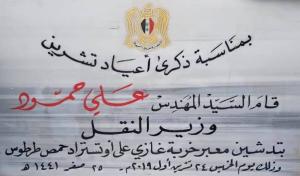 بمناسبة ذكرى أعياد تشرين
قام السيد المهندس علي حمود
وزير النقل
بتدشين معبر خربة غازي على أوتستراد حمص طرطوس
وذلك يوم الخميس ٢٤ تشرين أول ٢٠١٩م. ٢٥ صفر ١٤٤١ هـ